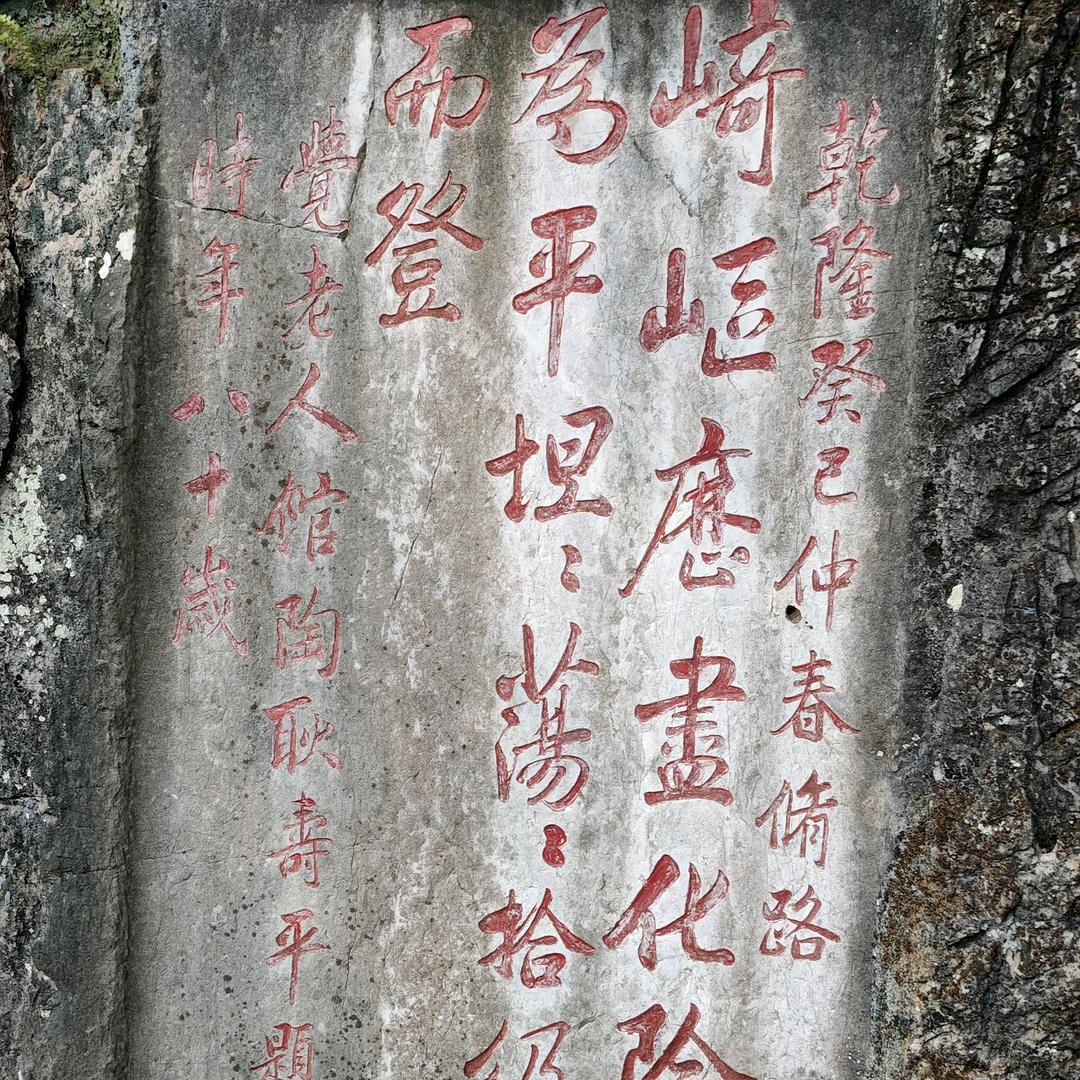 乾隆癸巳仲春脩路
崎岖歷盡化險
為平坦〻蕩〻拾級
而登
覺老人館陶耿壽平題
時年八十歲